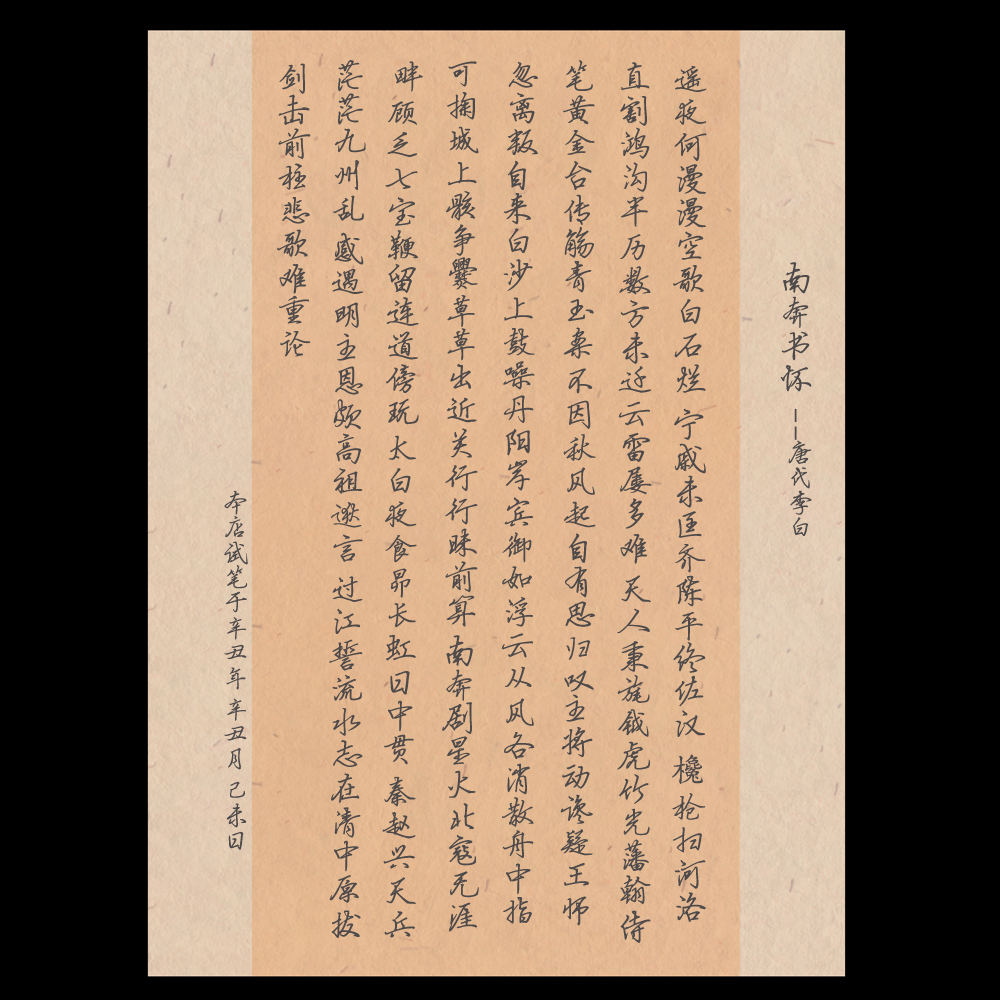 南奔书怀 ——唐代李白
遥夜何漫漫空歌白石烂 宁戚未匡齐陈平终佐汉 欃枪扫河洛
直割鸿沟半历数方未迁云雷屡多难 天人秉旄钺虎竹光藩翰侍
笔黄金台传觞青玉案不因秋风起自有思归叹主将动谗疑王师
忽离叛自来白沙上鼓噪丹阳岸宾御如浮云从风各消散舟中指
可掬城上骸争爨草草出近关行行昧前算 南奔剧星火北寇无涯
畔顾乏七宝鞭留连道傍玩太白夜食昴长虹日中贯 秦赵兴天兵
茫茫九州乱感遇明主恩颇高祖逖言 过江誓流水志在清中原拔
剑击前柱悲歌难重论
本店试笔于辛丑年 辛丑月 己未日